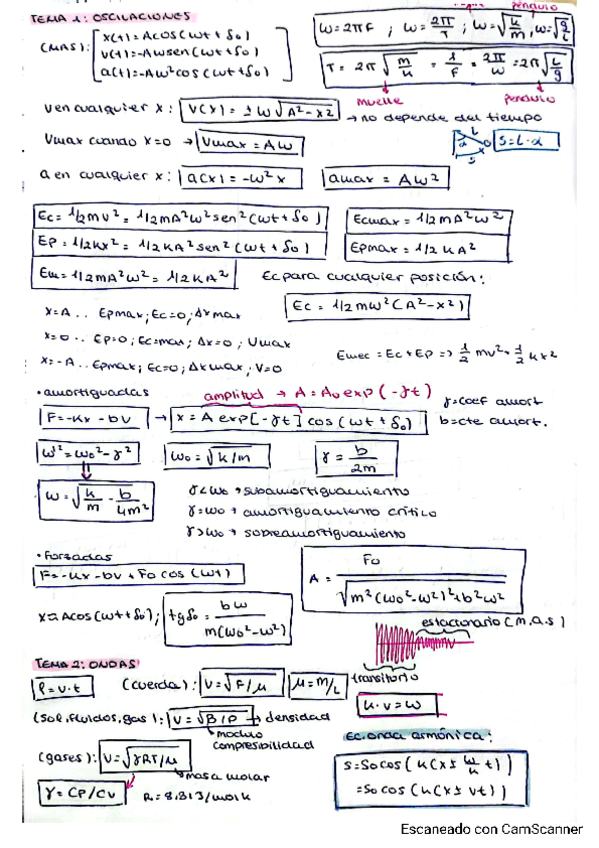 péndulo
TEMA 1: OSCILACIONES
(MAS): x(t)=Acos(ωt+δ0)
v(t)=-Aωsen(ωt+δ0)
a(t)=-Aω²cos(ωt+δ0)
ω=2πF ; ω=2π/T ; ω=√(k/m), ω=√(g/L)
T=2π√(m/k) = 1/F = 2π/ω = 2π√(L/g)
muelle péndulo
v en cualquier x: v(x)=±ω√(A²-x²) → no depende del tiempo
Vmax cuando x=0 → Vmax=Aω
L α S S=L·α
a en cualquier x: a(x)=-ω²x amax=Aω²
Ec=1/2mv²=1/2mA²ω²sen²(ωt+δ0) Ecmax=1/2mA²ω²
Ep=1/2kx²=1/2kA²sen²(ωt+δ0) Epmax=1/2kA²
Em=1/2mA²ω²=1/2kA² Ec para cualquier posición:
Ec=1/2mω²(A²-x²)
x=A.. Epmax; Ec=0; Δxmax
x=0.. Ep=0; Ec=max; Δx=0; Vmax
x=-A.. Epmax; Ec=0; Δxmax; V=0
Emec=Ec+Ep => 1/2 mv²+1/2 kx²
·amortiguadas amplitud → A=A0exp(-γt) γ=coef amort
F=-kx-bv → x=Aexp[-γt]cos(ωt+δ0) b=cte amort.
ω²=ω0²-γ² ω0=√k/m γ=b/2m
ω=√(k/m-b/4m²)
γ<ω0 → subamortiguamiento
γ=ω0 → amortiguamiento crítico
γ>ω0 → sobreamortiguamiento
·Forzadas
F=-kx-bv+F0cos(ωt)
A=F0/√(m²(ω0²-ω²)²+b²ω²)
x=Acos(ωt+δ0); tgδ0=bω/m(ω0²-ω²)
estacionario (m.a.s)
transitorio
TEMA 2: ONDAS
l=v·t (cuerda): V=√F/μ μ=m/L
k·v=ω
(sol, fluidos, gas): V=√B/ρ → densidad
modulo compresibilidad
Ec. onda armónica:
(gases): V=√γRT/μ
masa molar
s=s0cos(k(x±ω/k t))
=s0cos(k(x±vt))
γ=CP/CV R=8.313/molk
Escaneado con CamScanner